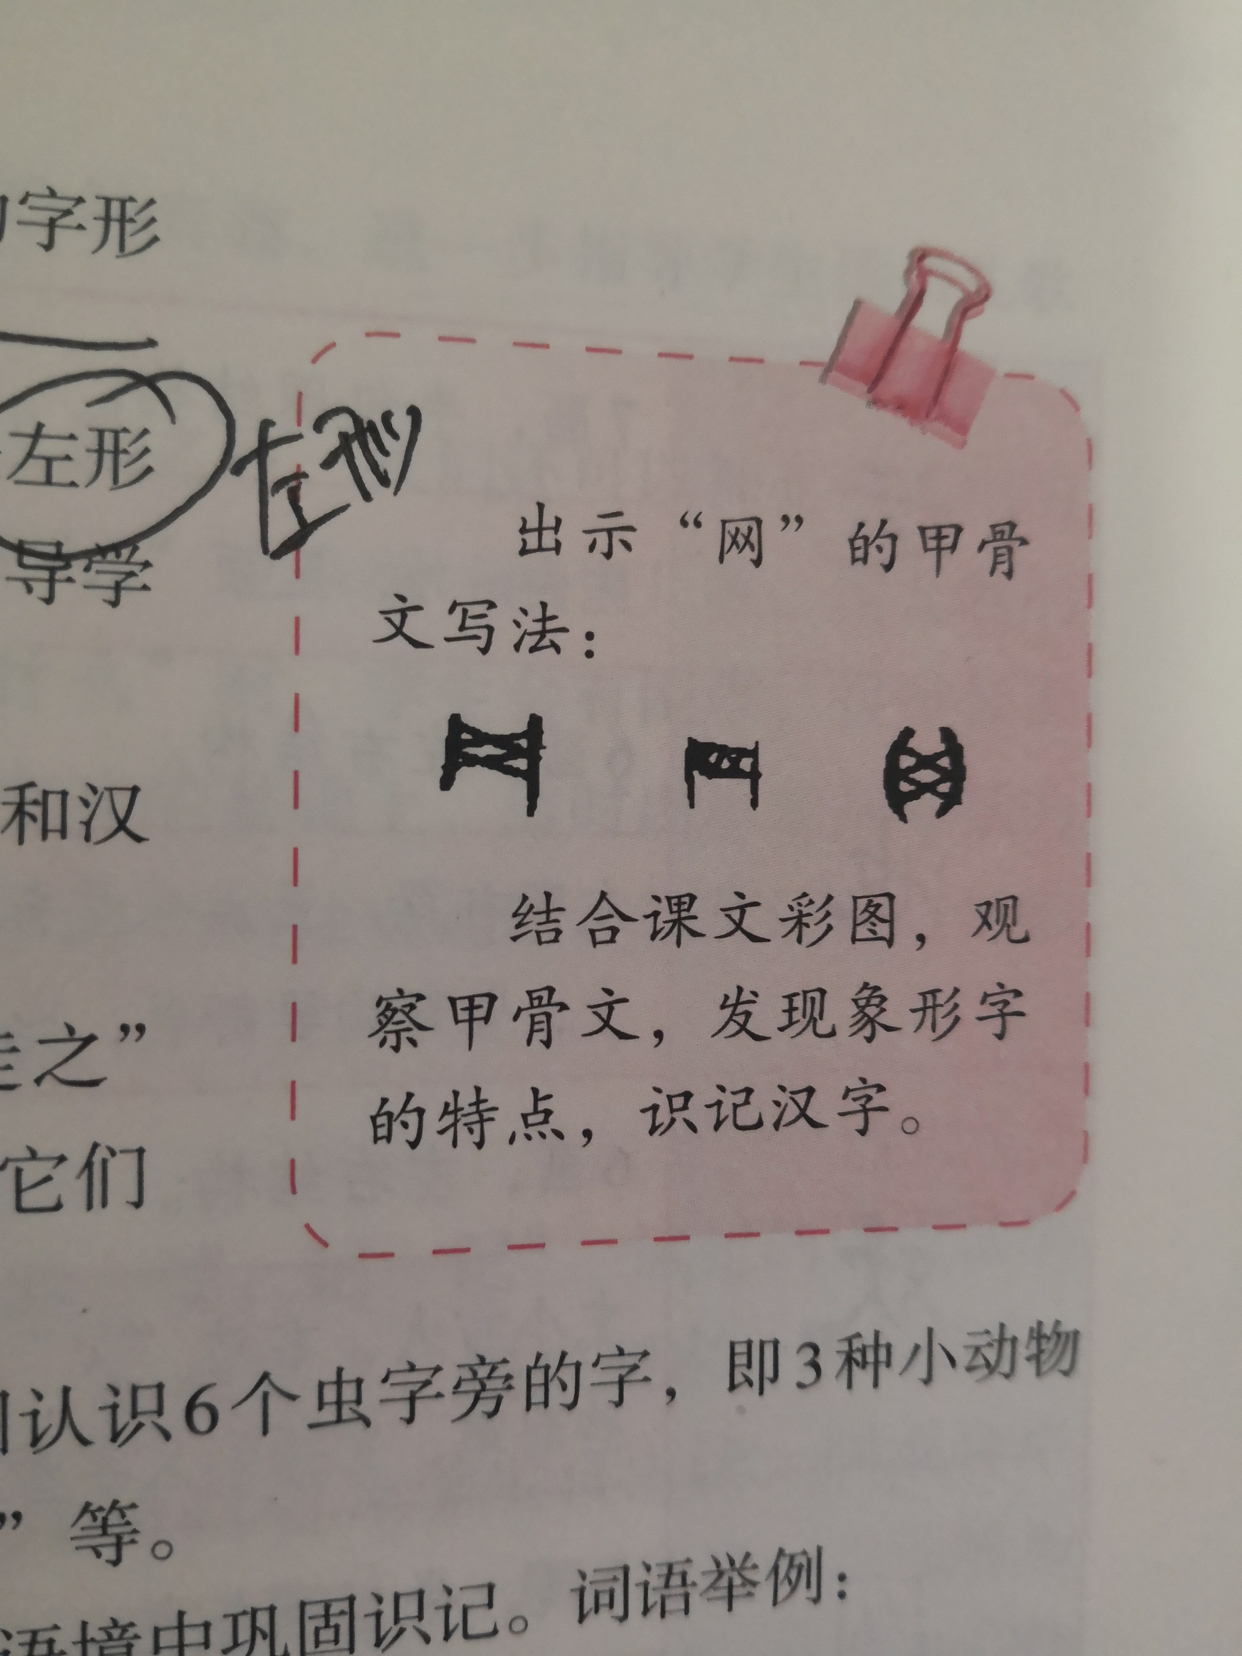 字形
左形
左形
导学
出示“网”的甲骨
文写法：
和汉
结合课文彩图，观
察甲骨文，发现象形字
的特点，识记汉字。
走之”
它们
认识6个虫字旁的字，即3种小动物
”等。
语境中巩固识记。词语举例：